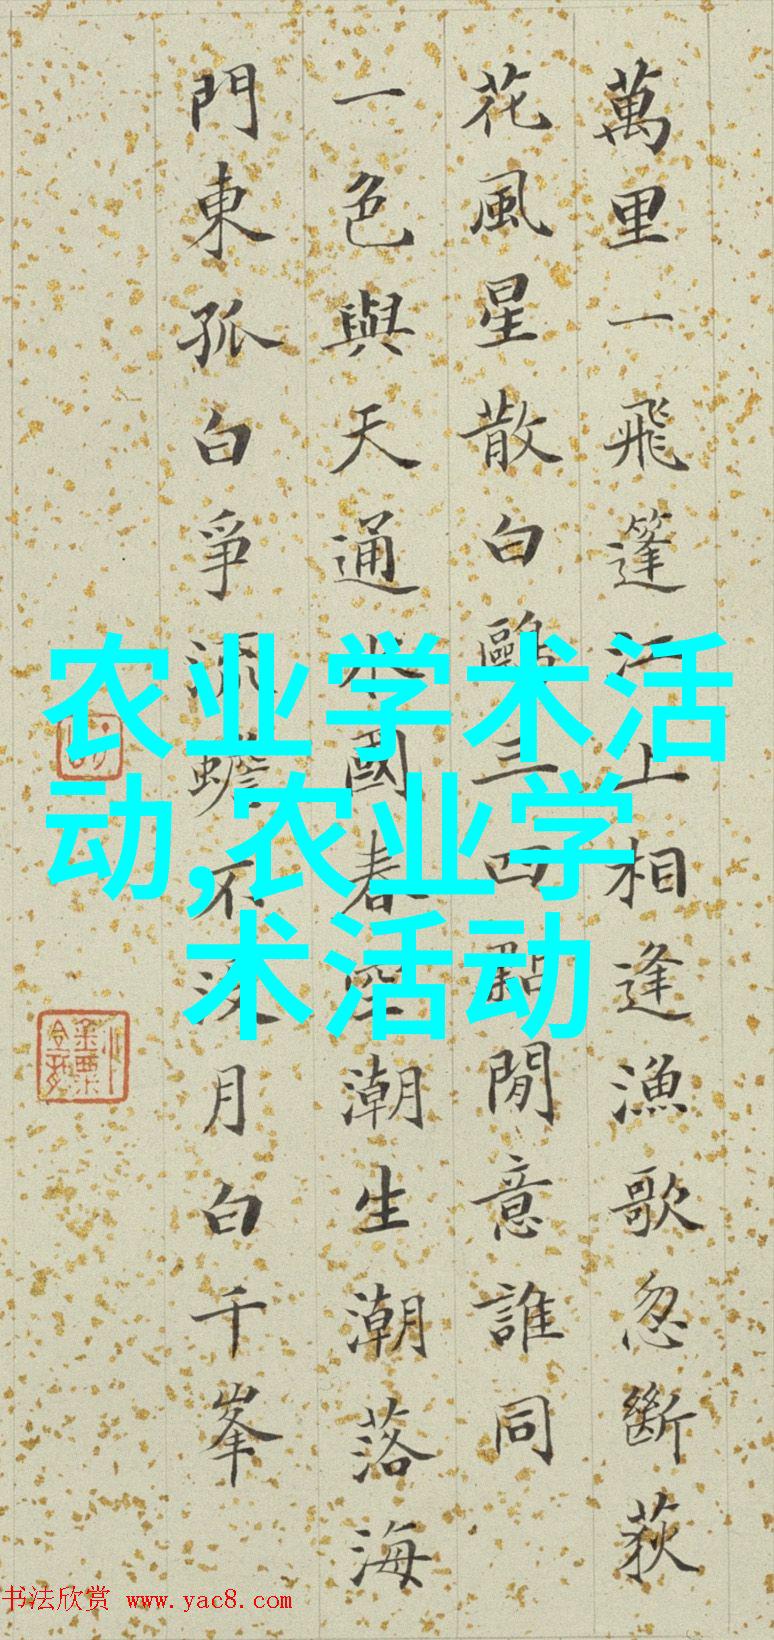 萬里一飛篷江上相逢漁歌忽斷荻
花風星散白鷗三四點閒意誰同
一色與天通水國春空潮生潮落海
門東孤白爭流蟾不沒月白千峯
农业学术活
动,农业学
术活动
书法欣赏 www.yac8.com